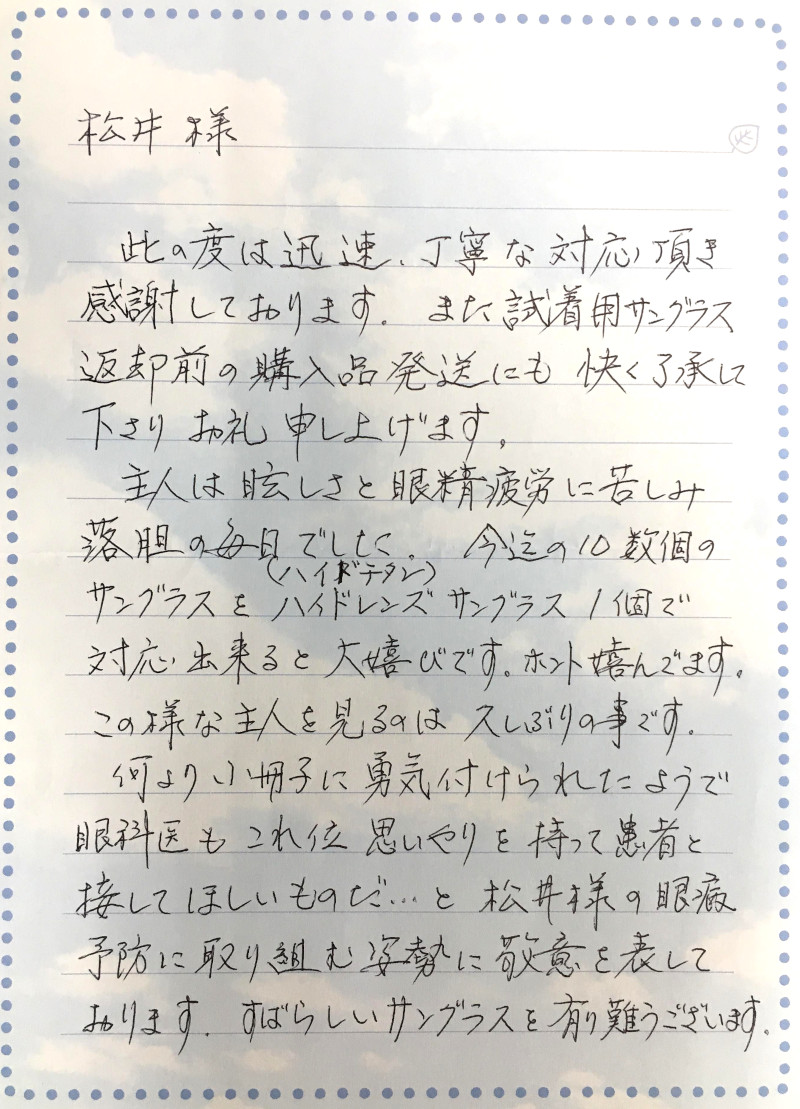 松井 様
此の度は迅速、丁寧な対応頂き
感謝しております。また試着用サングラス
返却前の購入品発送にも快く了承して
下さりお礼申し上げます。
主人は眩しさと眼精疲労に苦しみ
落胆の毎日でした。今迄の10数個の
(ハイドチタン)
サングラスをハイドレンズサングラス1個で
対応出来ると大嬉びです。ホント嬉んでます。
この様な主人を見るのは久しぶりの事です。
何より小冊子に勇気付けられたようで
眼科医もこれ位思いやりを持って患者と
接してほしいものだ…と松井様の眼病
予防に取り組む姿勢に敬意を表して
おります。すばらしいサングラスを有り難うございます。